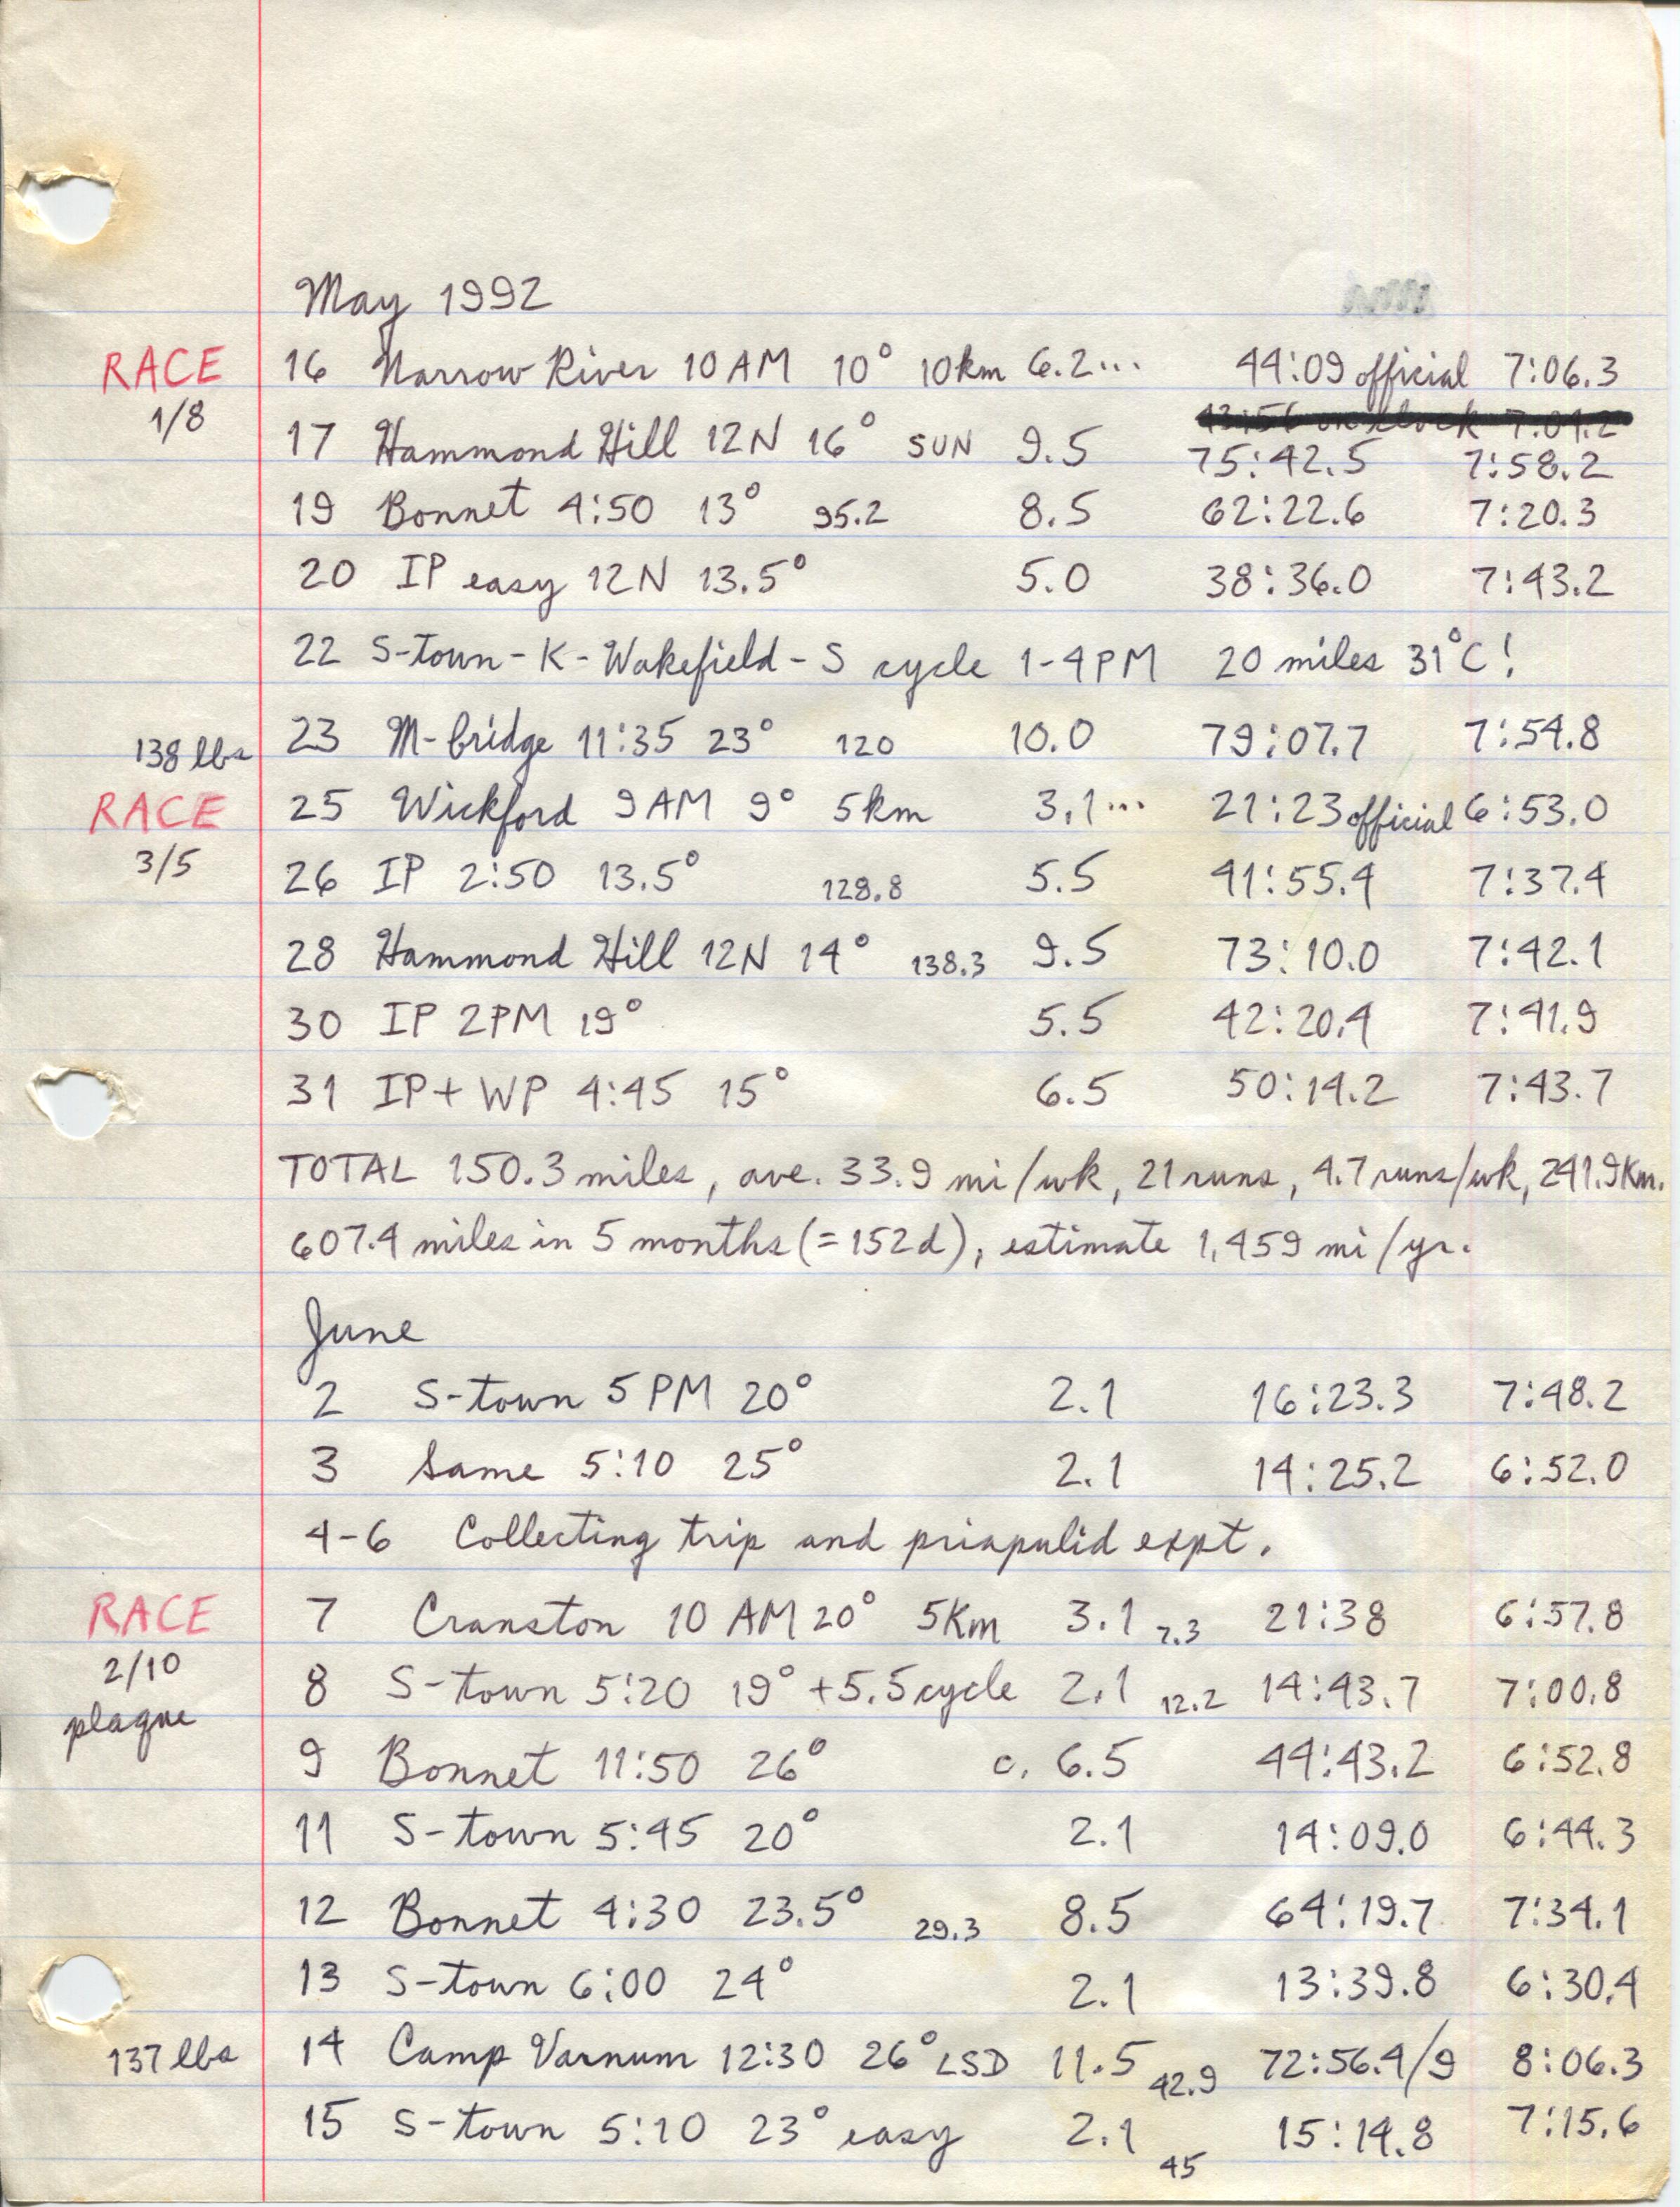 May 1992
RACE 16 Narrow River 10 AM 10° 10km 6.2... 44:09 official 7:06.3
1/8
43:56 on clock 7:04.2
17 Hammond Hill 12N 16° SUN 9.5 75:42.5 7:58.2
19 Bonnet 4:50 13° 95.2 8.5 62:22.6 7:20.3
20 IP easy 12N 13.5° 5.0 38:36.0 7:43.2
22 S-town - K - Wakefield - S cycle 1-4PM 20 miles 31°C!
138 lbs 23 M-bridge 11:35 23° 120 10.0 79:07.7 7:54.8
RACE 25 Wickford 9AM 9° 5km 3.1... 21:23 official 6:53.0
3/5 26 IP 2:50 13.5° 128.8 5.5 41:55.4 7:37.4
28 Hammond Hill 12N 14° 138.3 9.5 73:10.0 7:42.1
30 IP 2PM 19° 5.5 42:20.4 7:41.9
31 IP+ WP 4:45 15° 6.5 50:14.2 7:43.7
TOTAL 150.3 miles, ave. 33.9 mi/wk, 21 runs, 4.7 runs/wk, 241.9Km.
607.4 miles in 5 months (=152d), estimate 1,459 mi/yr.
June
2 S-town 5 PM 20° 2.1 16:23.3 7:48.2
3 Same 5:10 25° 2.1 14:25.2 6:52.0
4-6 Collecting trip and priapulid expt.
RACE 7 Cranston 10 AM 20° 5Km 3.1 7.3 21:38 6:57.8
2/10 8 S-town 5:20 19° +5.5 cycle 2.1 12.2 14:43.7 7:00.8
plaque
9 Bonnet 11:50 26° c. 6.5 44:43.2 6:52.8
11 S-town 5:45 20° 2.1 14:09.0 6:44.3
12 Bonnet 4:30 23.5° 29.3 8.5 64:19.7 7:34.1
13 S-town 6:00 24° 2.1 13:39.8 6:30.4
137 lbs 14 Camp Varnum 12:30 26° LSD 11.5 42.9 72:56.4/9 8:06.3
15 S-town 5:10 23° easy 2.1 45 15:14.8 7:15.6